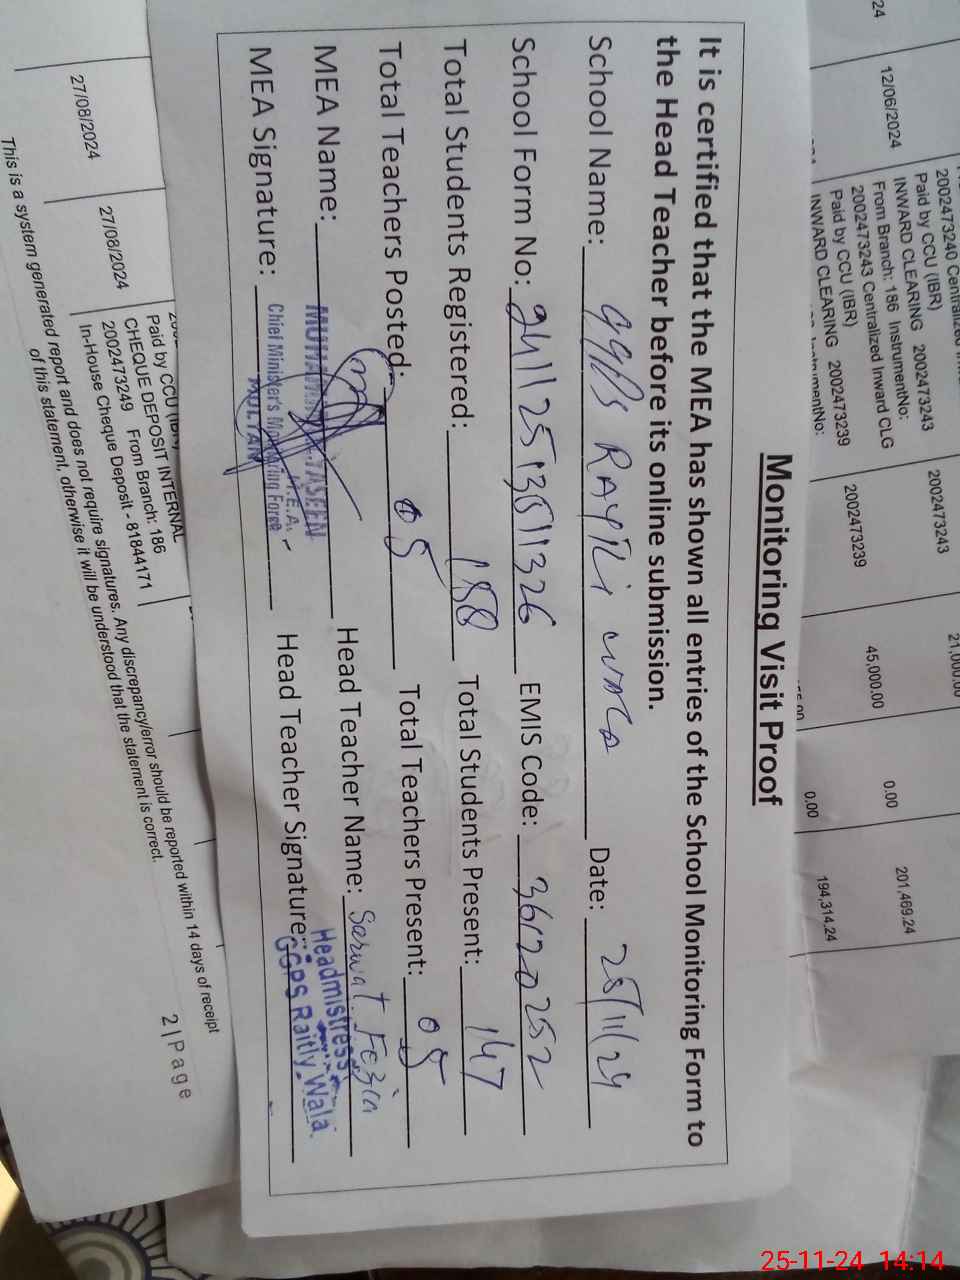 Monitoring Visit Proof
It is certified that the MEA has shown all entries of the School Monitoring Form to
the Head Teacher before its online submission.
School Name: GGPS RAYTLI WALA Date: 25/11/24
School Form No: EMIS Code: 36120252
Total Students Registered: 188 Total Students Present: 147
Total Teachers Posted: 05 Total Teachers Present: 05
MEA Name: Head Teacher Name: Sarwat Fozia
YASEEN
M.E.A.
Headmistress
MEA Signature: Head Teacher Signature:
Chief Minister's Monitoring Force
MULTAN
GGPS Raitly Wala
24
12/06/2024
2002473240
Paid by CCU (IBR)
INWARD CLEARING 2002473243
From Branch: 186 InstrumentNo:
2002473243 Centralized Inward CLG
Paid by CCU (IBR)
INWARD CLEARING 2002473239
2002473243
2002473239
21,000.00
45,000.00
0.00
0.00
201,469.24
194,314.24
27/08/2024
27/08/2024
Paid by CCU (IBR)
CHEQUE DEPOSIT INTERNAL
2002473249 From Branch: 186
In-House Cheque Deposit - 81844171
This is a system generated report and does not require signatures. Any discrepancy/error should be reported within 14 days of receipt
of this statement, otherwise it will be understood that the statement is correct.
2 | Page
25-11-24 14:14